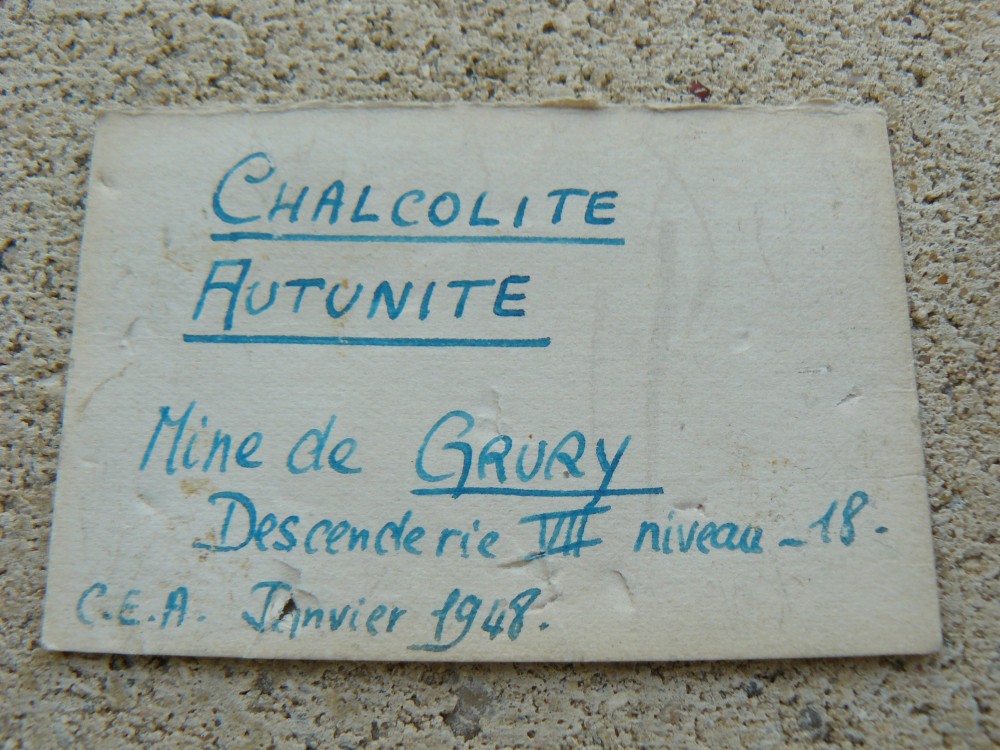 CHALCOLITE
AUTUNITE
Mine de GRURY
Descenderie VII niveau - 18.
C.E.A. Janvier 1948.